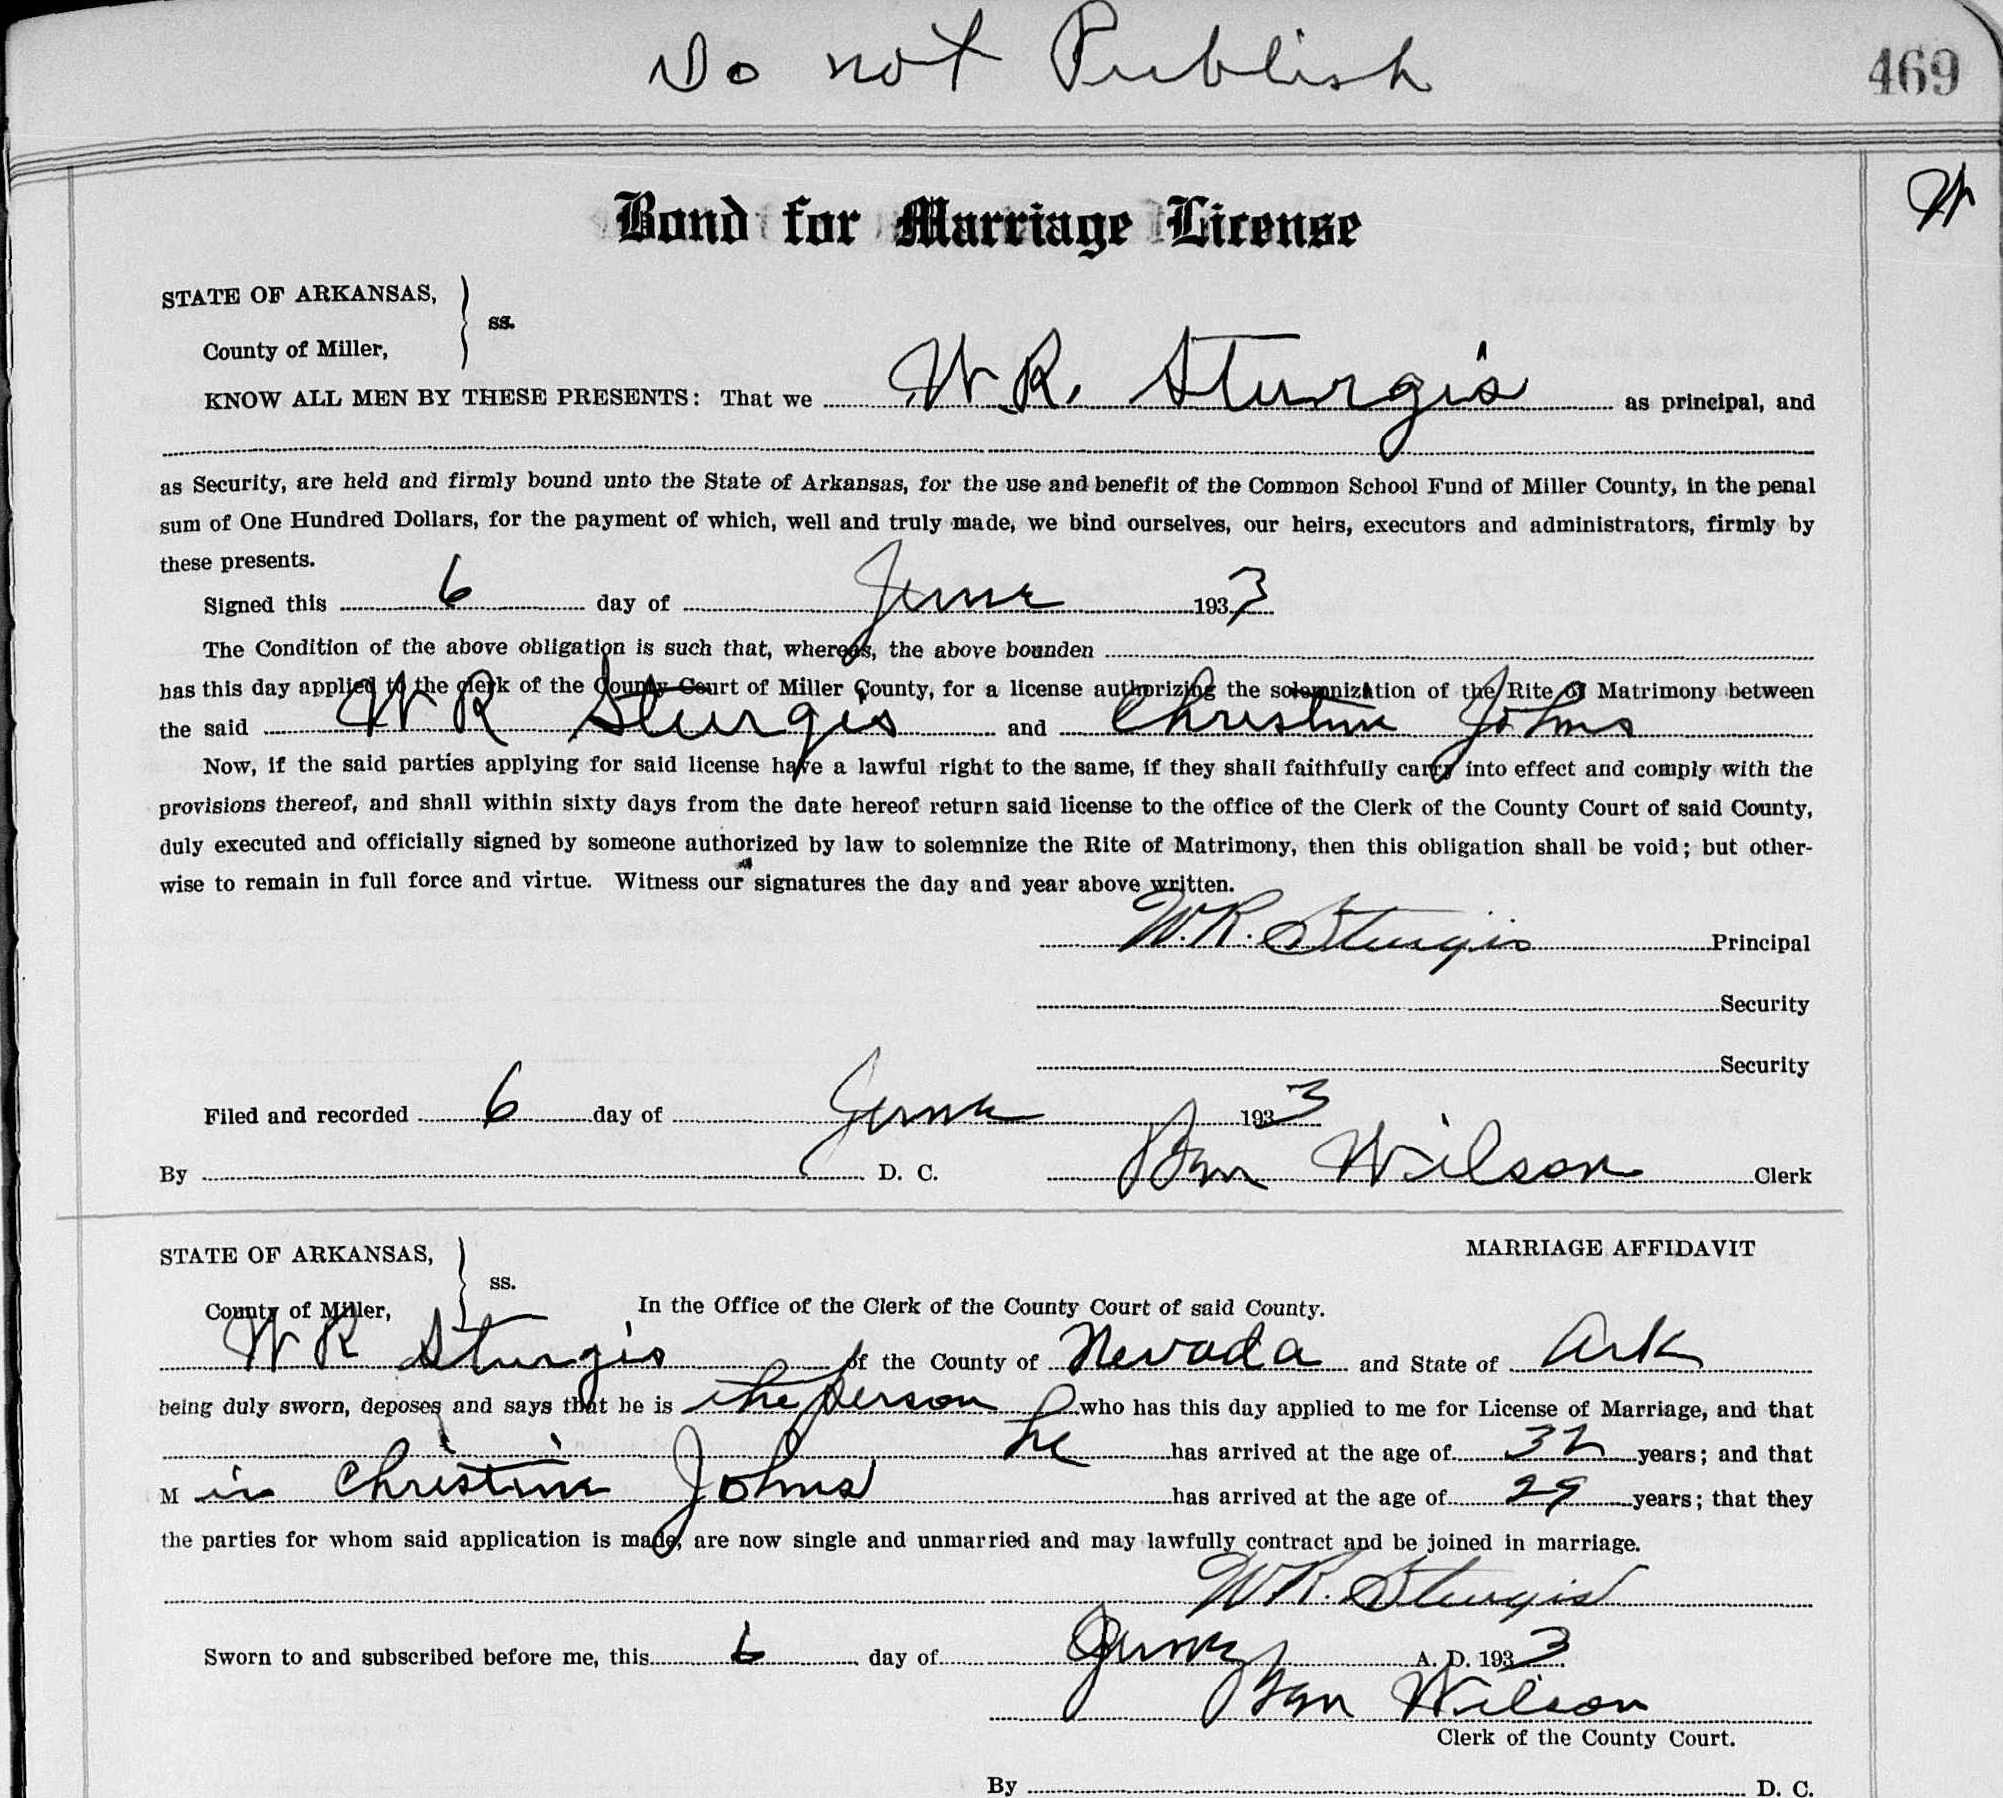 Do not Publish
469
W
Bond for Marriage License
STATE OF ARKANSAS,
ss.
County of Miller,
KNOW ALL MEN BY THESE PRESENTS: That we W. R. Sturgis as principal, and
as Security, are held and firmly bound unto the State of Arkansas, for the use and benefit of the Common School Fund of Miller County, in the penal
sum of One Hundred Dollars, for the payment of which, well and truly made, we bind ourselves, our heirs, executors and administrators, firmly by
these presents.
Signed this 6 day of June 1933
The Condition of the above obligation is such that, whereas, the above bounden
has this day applied to the clerk of the County Court of Miller County, for a license authorizing the solemnization of the Rite of Matrimony between
the said W R Sturgis and Christine Johns
Now, if the said parties applying for said license have a lawful right to the same, if they shall faithfully carry into effect and comply with the
provisions thereof, and shall within sixty days from the date hereof return said license to the office of the Clerk of the County Court of said County,
duly executed and officially signed by someone authorized by law to solemnize the Rite of Matrimony, then this obligation shall be void; but other-
wise to remain in full force and virtue. Witness our signatures the day and year above written.
W. R. Sturgis Principal
Security
Security
Filed and recorded 6 day of June 1933
By D. C. Ben Wilson Clerk
STATE OF ARKANSAS, MARRIAGE AFFIDAVIT
ss.
County of Miller, In the Office of the Clerk of the County Court of said County.
W R Sturgis of the County of Nevada and State of Ark
being duly sworn, deposes and says that he is the person who has this day applied to me for License of Marriage, and that
he has arrived at the age of 32 years; and that
Miss Christine Johns has arrived at the age of 29 years; that they
the parties for whom said application is made, are now single and unmarried and may lawfully contract and be joined in marriage.
W R. Sturgis
Sworn to and subscribed before me, this 6 day of June A. D. 1933
Ben Wilson
Clerk of the County Court.
By D. C.